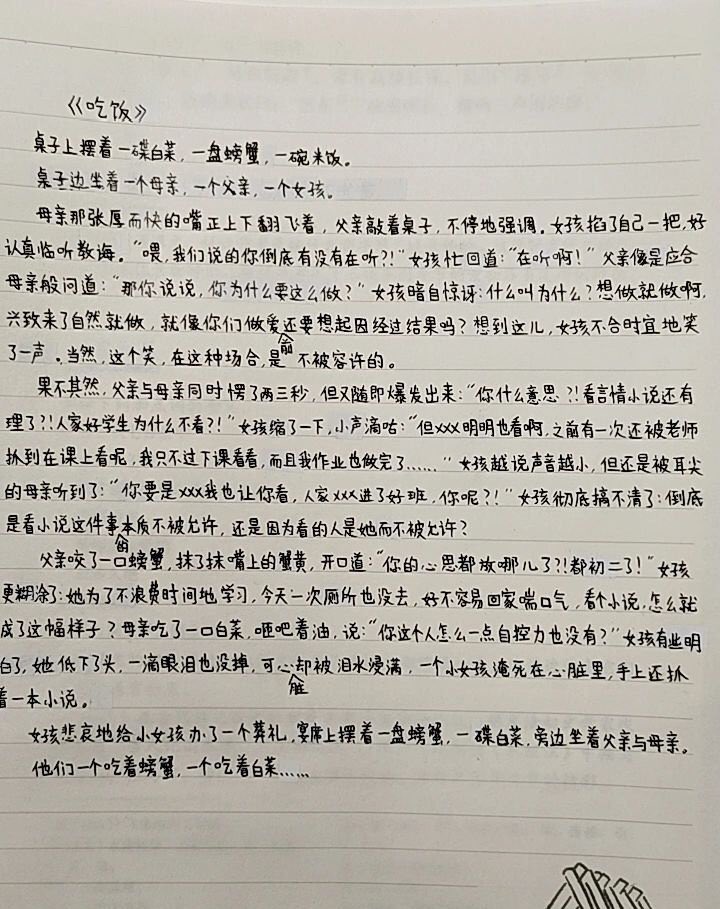 《吃饭》
桌子上摆着一碟白菜，一盘螃蟹，一碗米饭。
桌子边坐着一个母亲，一个父亲，一个女孩。
母亲那张厚而快的嘴正上下翻飞着，父亲敲着桌子，不停地强调。女孩掐了自己一把，好
认真临听教诲。“喂，我们说的你倒底有没有在听？！”女孩忙回道：“在听啊！”父亲像是应合
母亲般问道：“那你说说，你为什么要这么做？”女孩暗自惊讶：什么叫为什么？想做就做啊，
兴致来了自然就做，就像你们做爱还要想起因经过结果吗？想到这儿，女孩不合时宜地笑
了一声。当然，这个笑，在这种场合，是不被容许的。
果不其然，父亲与母亲同时愣了两三秒，但又随即爆发出来：“你什么意思？！看言情小说还有
理了？！人家好学生为什么不看？！”女孩缩了一下，小声滴咕：“但xxx明明也看啊，之前有一次还被老师
抓到在课上看呢，我只不过下课看看，而且我作业也做完了……”女孩越说声音越小，但还是被耳尖
的母亲听到了：“你要是xxx我也让你看，人家xxx进了好班，你呢？！”女孩彻底搞不清了：倒底
是看小说这件事的本质不被允许，还是因为看的人是她而不被允许？
父亲咬了一口螃蟹，抹了抹嘴上的蟹黄，开口道：“你的心思都放哪儿了？！都初二了！”女孩
更糊涂了：她为了不浪费时间地学习，今天一次厕所也没去，好不容易回家喘口气，看个小说，怎么就
成了这幅样子？母亲吃了一口白菜，咂吧着油，说：“你这个人怎么一点自控力也没有？”女孩有些明
白了，她低下了头，一滴眼泪也没掉，可心脏却被泪水浸满，一个小女孩淹死在心脏里，手上还抓
着一本小说。
女孩悲哀地给小女孩办了一个葬礼，宴席上摆着一盘螃蟹，一碟白菜，旁边坐着父亲与母亲。
他们一个吃着螃蟹，一个吃着白菜……